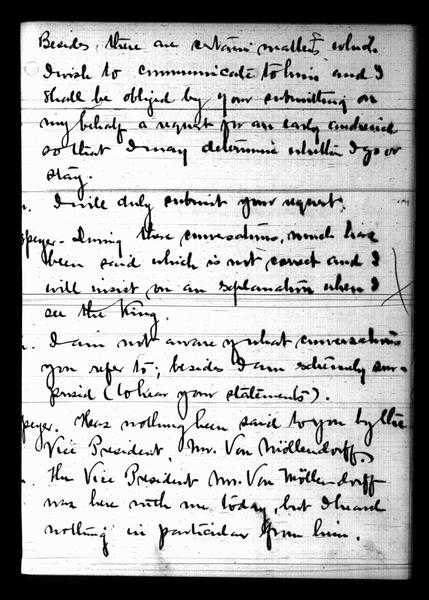 Besides, there are certain matters which
I wish to communicate to him and I
shall be obliged by your submitting on
my behalf a request for an early audience
so that I may determine whether I go or
stay.
I will duly submit your request.
peyer. During these conversations, much has
been said which is not correct and I
will insist on an explanation when I
see the King.
I am not aware of what conversations
you refer to; besides I am extremely sur-
prised (to hear your statements).
peyer. Has nothing been said to you by the
Vice President, Mr. Von Möllendorff.
The Vice President Mr. Von Möllendorff
was here with me today, but I heard
nothing in particular from him.